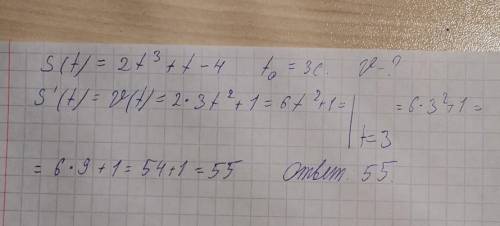 S(t) = 2t³ + t - 4    t₀ = 3с.    v - ?
S'(t) = v(t) = 2·3t² + 1 = 6t² + 1 = | t=3 = 6·3² + 1 =
= 6·9 + 1 = 54 + 1 = 55    Ответ 55.